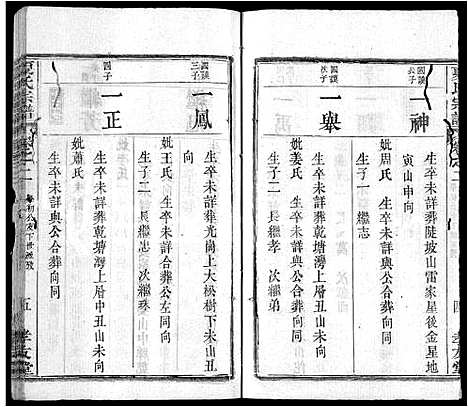 國謨長子
一神
生卒未詳葬陡坡山雷家屋後金星地
寅山申向
妣周氏 生卒未詳與公合葬向同
生子一 繼志
國謨次子
一舉
生卒未詳葬乾塘灣上層丑山未向
妣姜氏 生卒未詳與公合葬向同
生子二 長繼孝 次繼弟
國謨三子
一鳳
生卒未詳葬光崗上大松樹下未山丑
向
妣王氏 生卒未詳合葬公左同向
生子二 長繼忠 次繼珠
四子
一正
生卒未詳葬乾塘灣上層中丑山未向
妣蕭氏 生卒未詳與公合葬向同
氏宗譜
卷之二
五
孝友堂